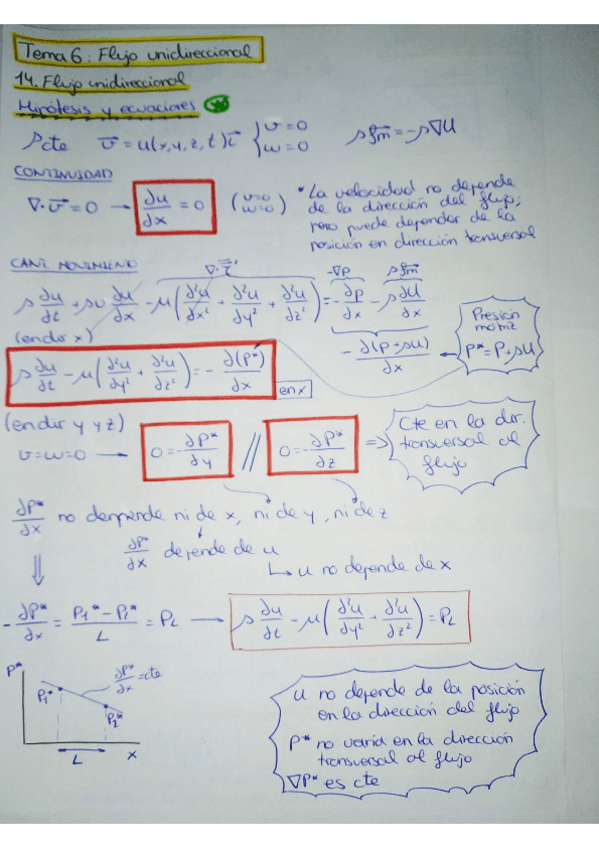 Tema 6: Flujo unidireccional
14. Flujo unidireccional
Hipótesis y ecuaciones
ρ cte v⃗ = u(x,y,z,t) i⃗ { v = 0 w = 0 ρf⃗m = -ρ∇U
CONTINUIDAD
∇·v⃗ = 0 → ∂u/∂x = 0 (v=0 w=0) * La velocidad no depende
de la dirección del flujo,
pero puede depender de la
posición en dirección transversal
CANT MOVIMIENTO
∇·τ̿' -∇P ρf⃗m
ρ ∂u/∂t + ρu ∂u/∂x - μ(∂²u/∂x² + ∂²u/∂y² + ∂²u/∂z²) = -∂P/∂x - ρ∂U/∂x
(en dir x)
- ∂(P+ρU)/∂x
Presión
motriz
P* = P+ρU
ρ ∂u/∂t - μ(∂²u/∂y² + ∂²u/∂z²) = - ∂(P*)/∂x
en x
(en dir y y z)
v=w=0 → 0=-∂P*/∂y // 0=-∂P*/∂z ⇒
Cte en la dir.
transversal al
flujo
∂P*/∂x no denpende ni de x, ni de y, ni de z
∂P*/∂x depende de u
↳ u no depende de x
-∂P*/∂x = P1* - P2* / L = PL → ρ ∂u/∂t - μ(∂²u/∂y² + ∂²u/∂z²) = PL
P*
∂P*/∂x = cte
P1*
P2*
L
x
u no depende de la posición
en la dirección del flujo
P* no varía en la dirección
transversal al flujo
∇P* es cte